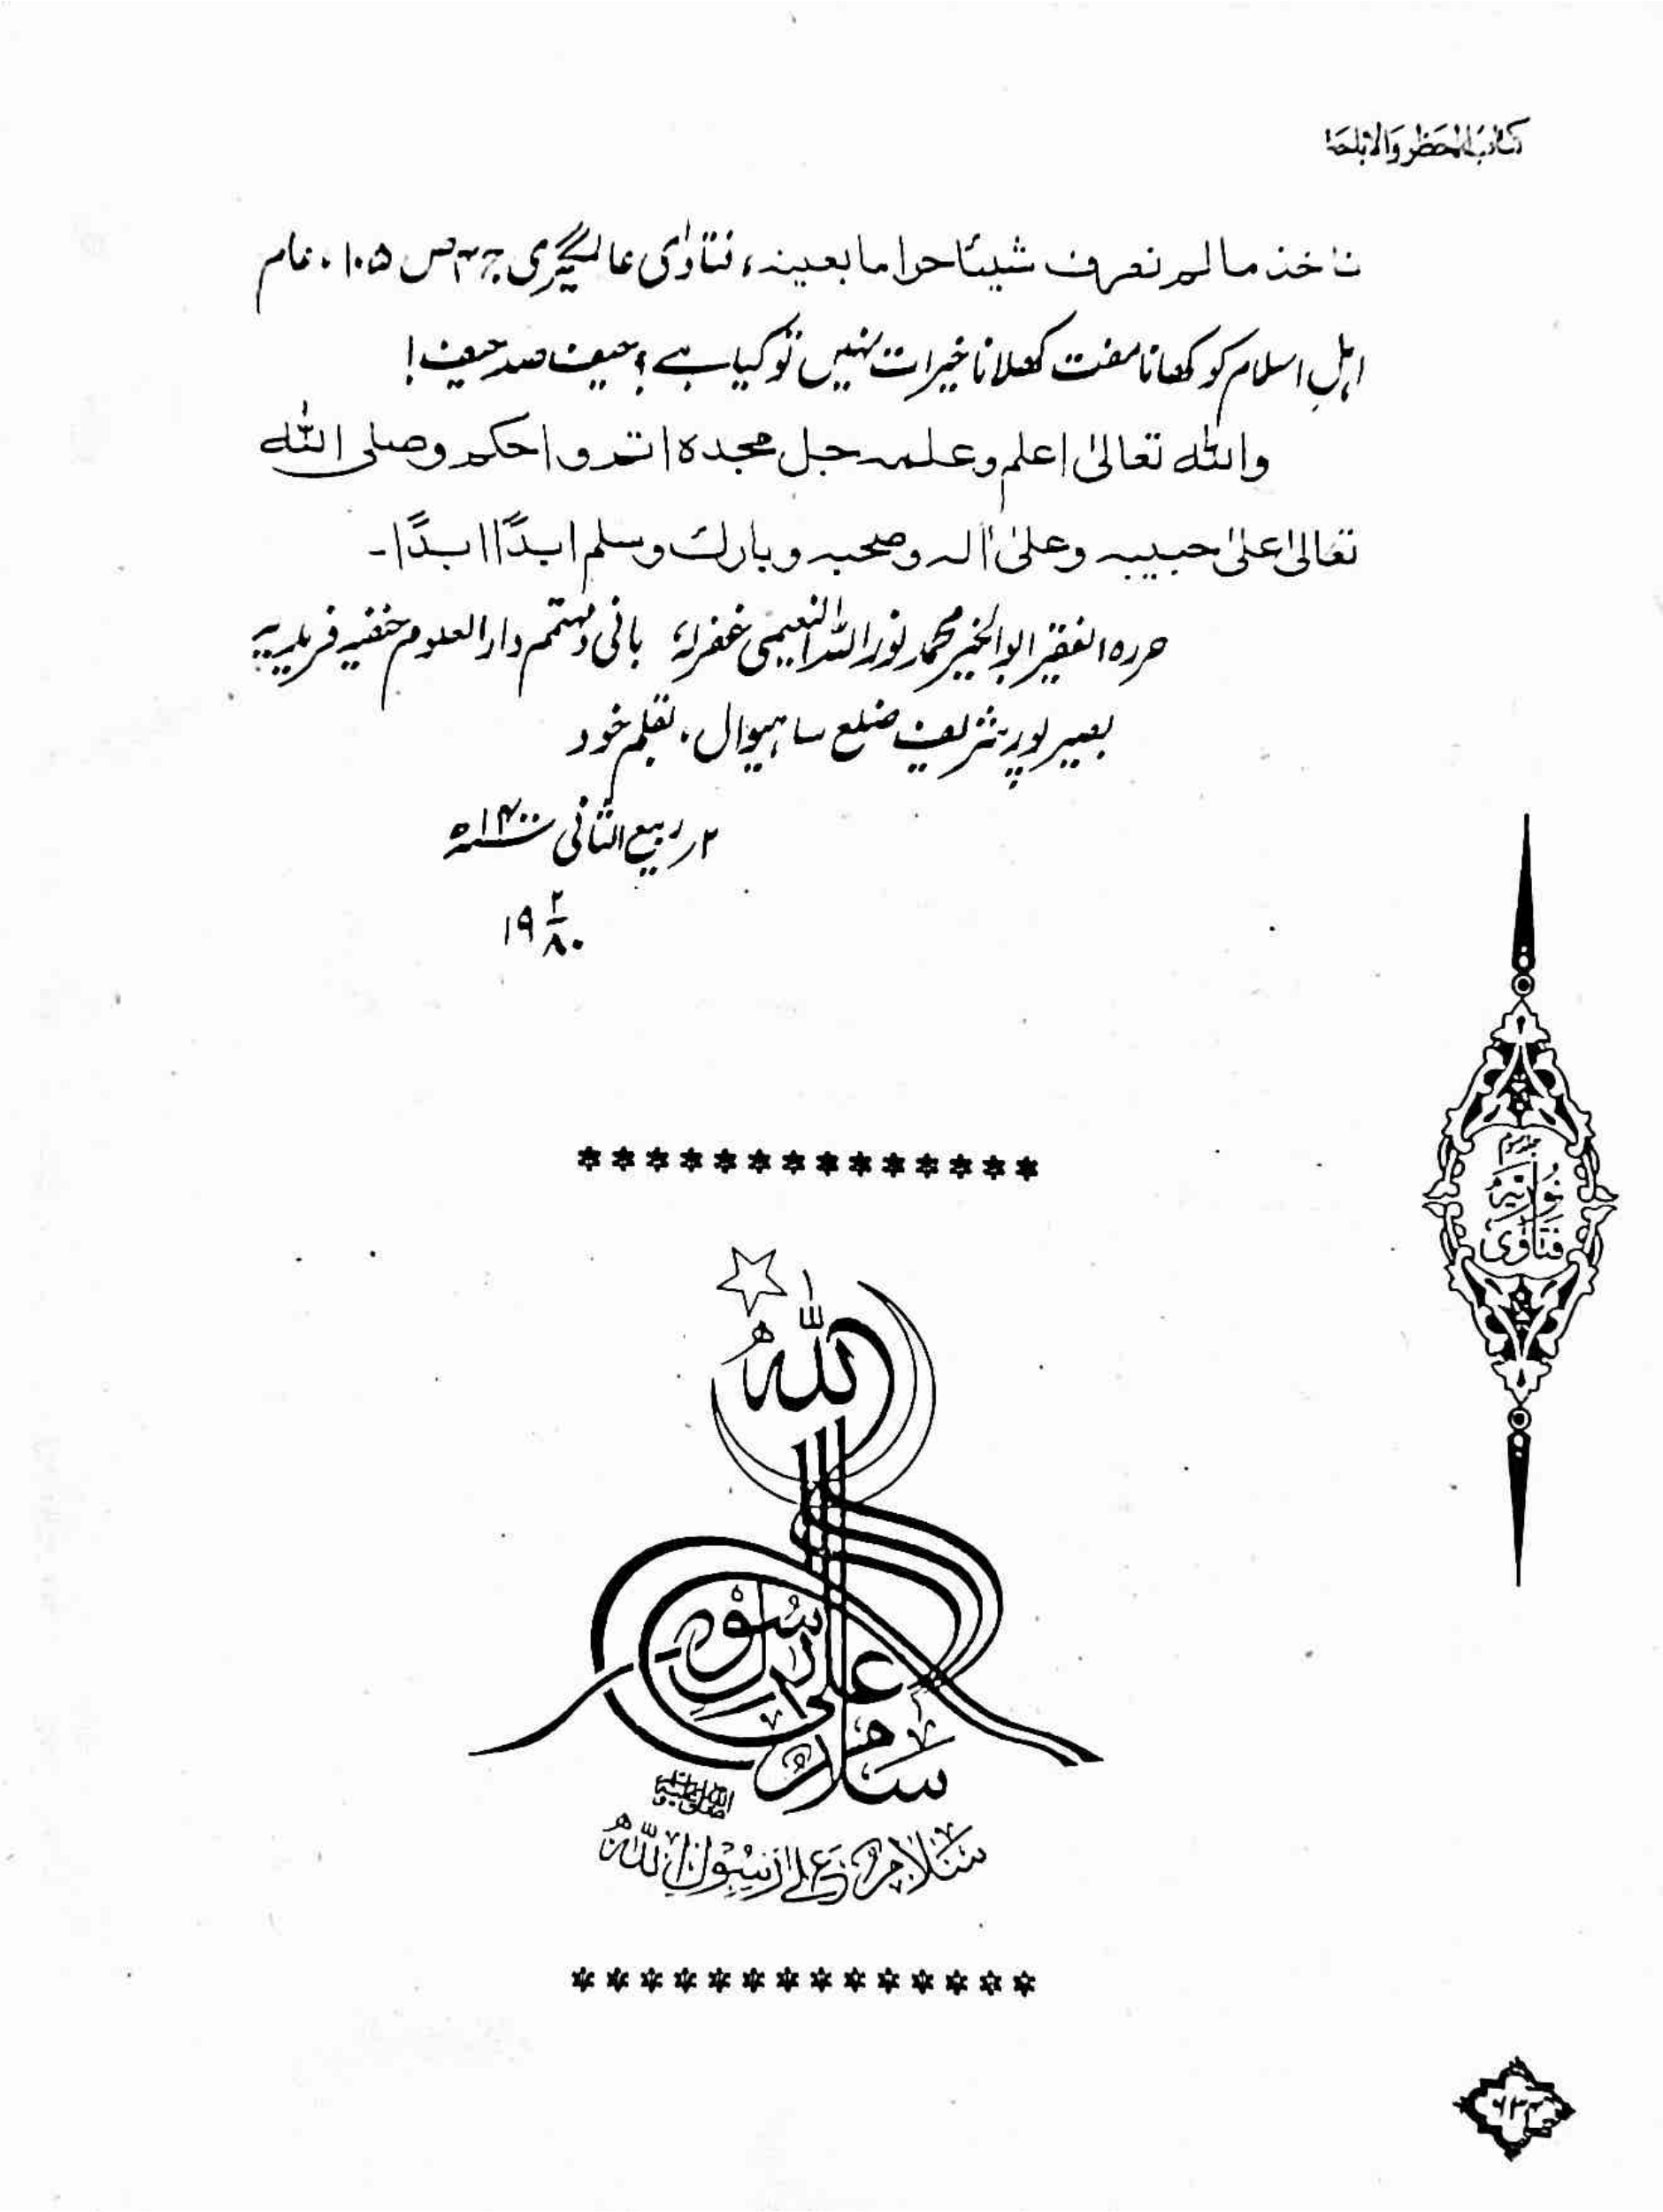 كتاب الحظر والاباحة
ناخذ مالم نعرف شیئا حراما بعینه، فتاوٰی عالمگیری ج ۴ ص ۱۰۵، عام
اہلِ اسلام کو کھانا مفت کھلانا خیرات نہیں تو کیا ہے؟ حیف صد حیف!
واللہ تعالیٰ اعلم وعلمہ جل مجدہ اتم واحکم وصلی اللہ
تعالیٰ علیٰ حبیبہ وعلیٰ اٰلہ وصحبہ وبارك وسلم ابدًا ابدًا۔
حررہ الفقیر ابوالخیر محمد نور اللہ النعیمی غفرلہٗ بانی و مہتمم دارالعلوم حنفیہ فریدیہ
بصیر پور شریف ضلع ساہیوال، بقلم خود
۲ ر ربیع الثانی ۱۴۰۰ ھ
۱۹ ۲/۸۰
جلد سوم
فتاوٰی نوریہ
سلام علی رسول اللہ
صلی اللہ علیہ وسلم
سَلَامٌ عَلٰی رَسُوْلِ اللّٰہِ